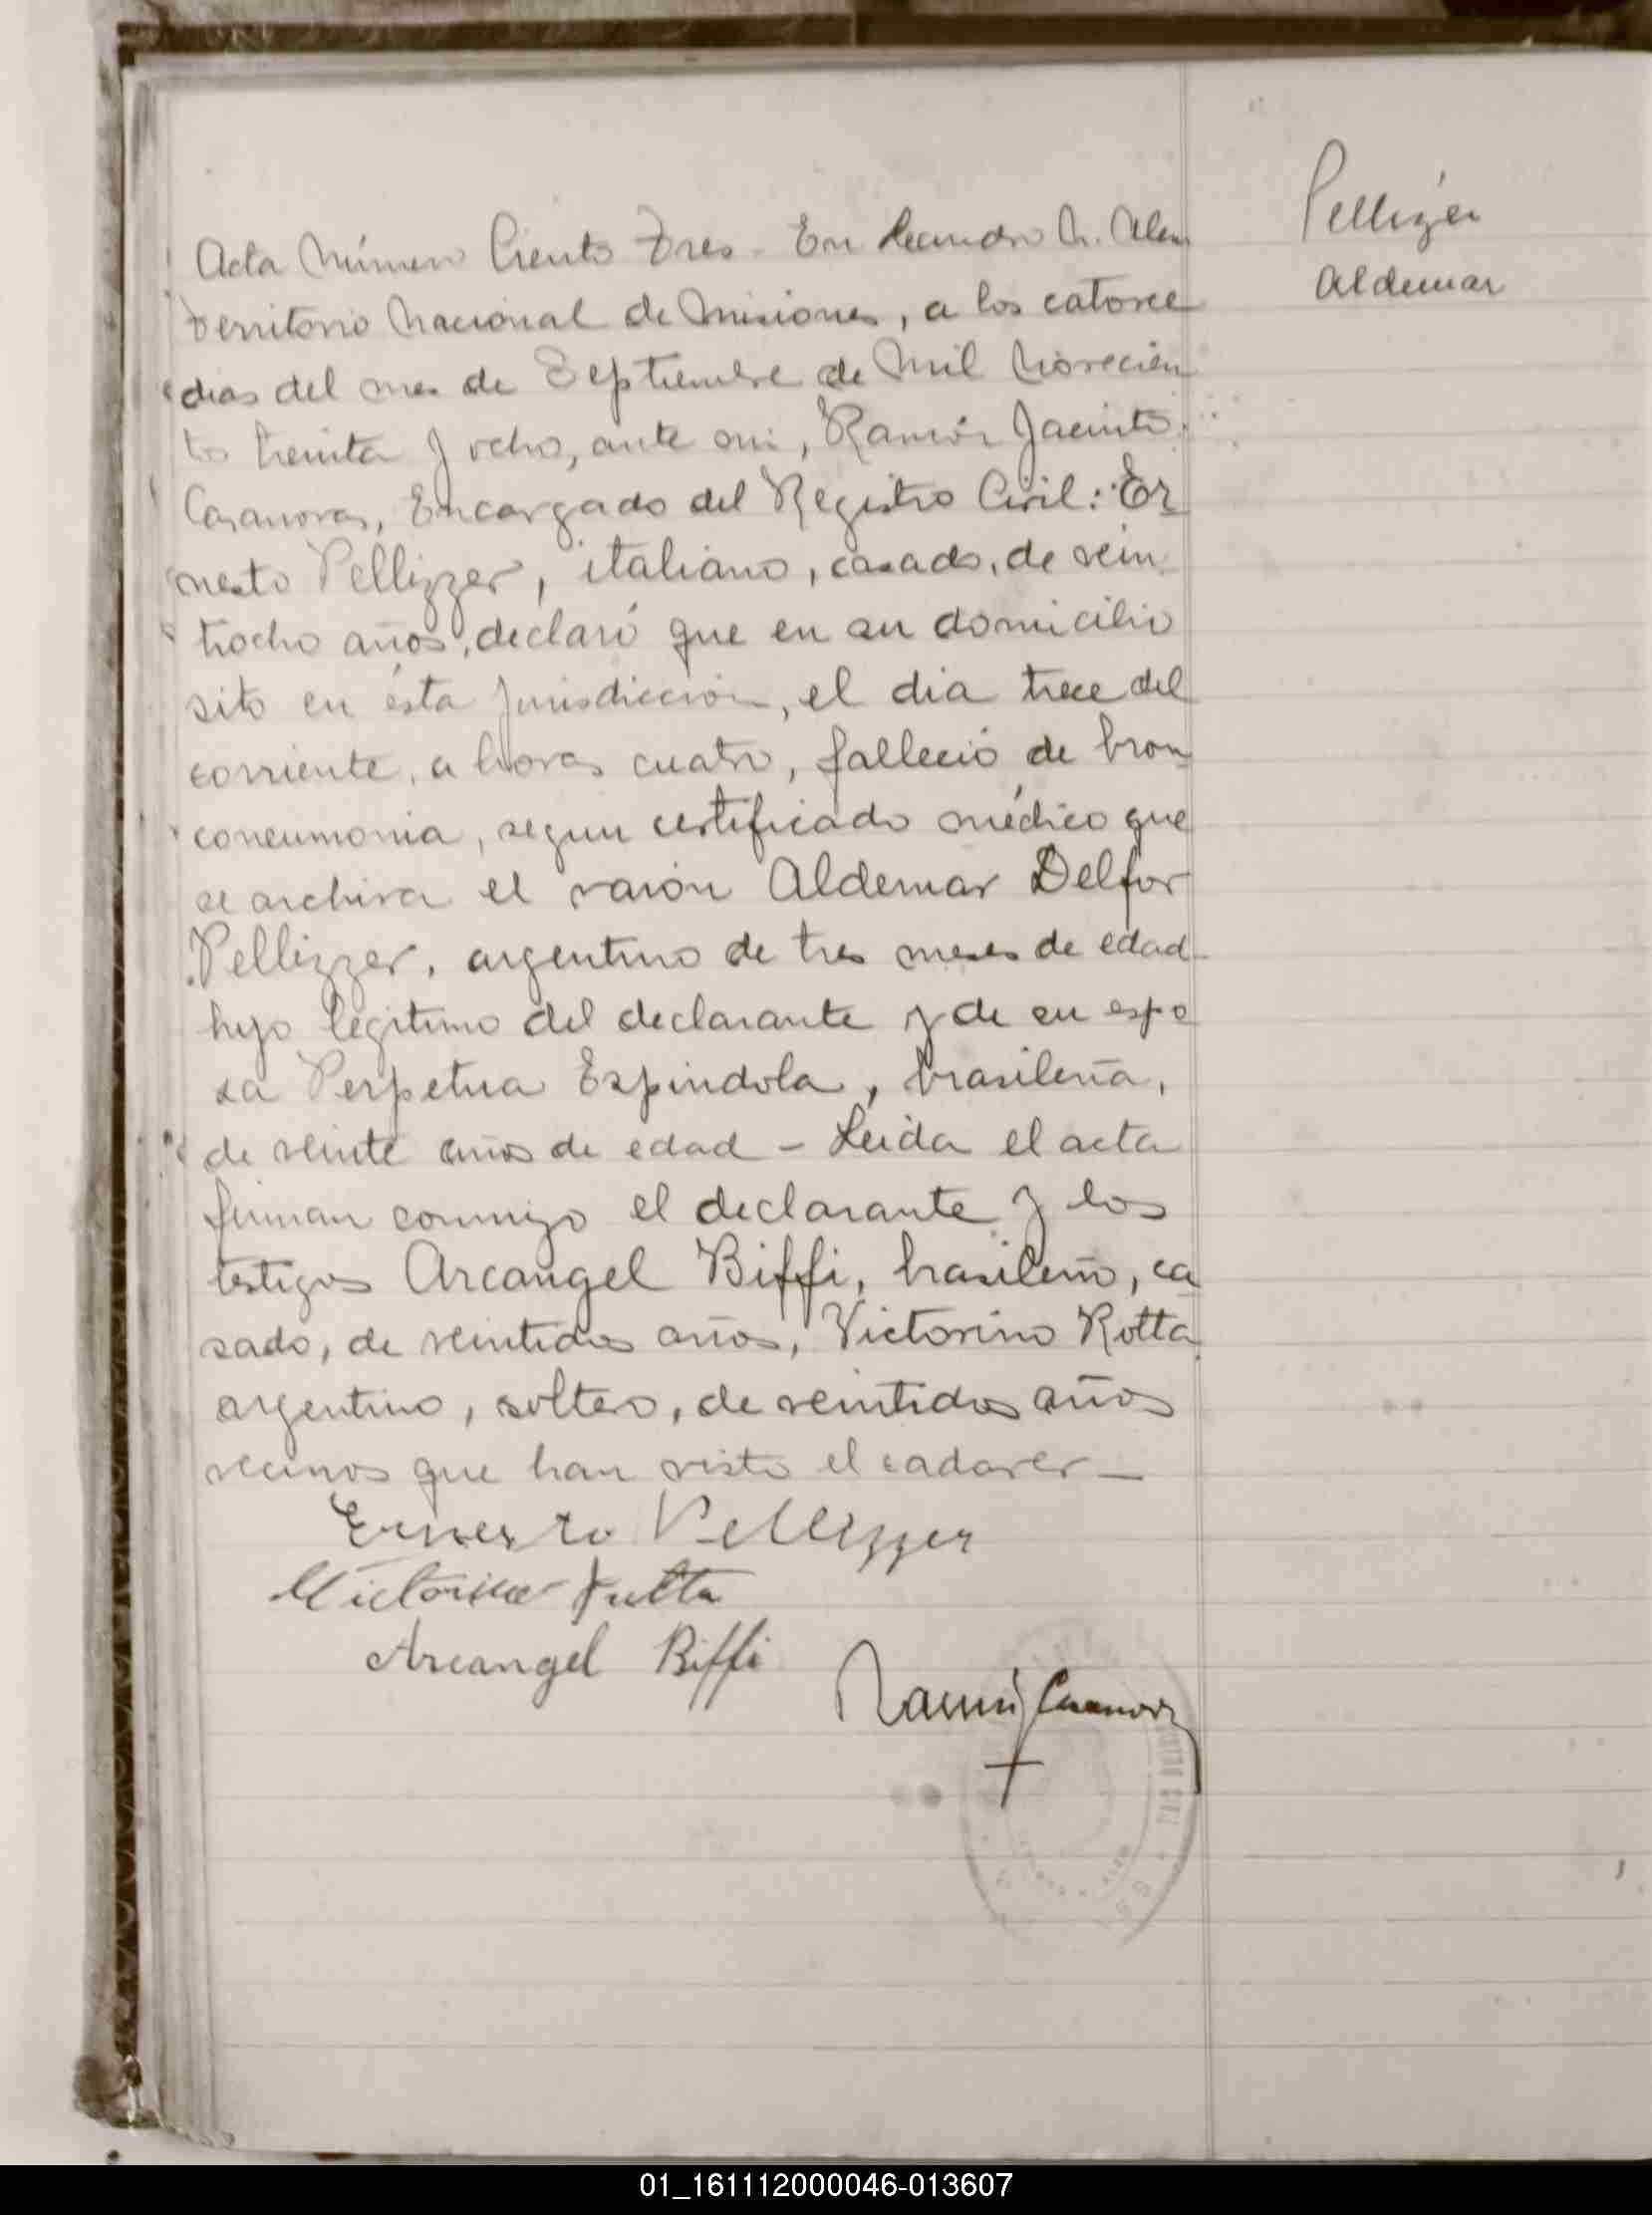 Pellizzer
Aldemar
Acta Número Ciento Tres - En Leandro N. Alem
Territorio Nacional de Misiones, a los catorce
dias del mes de Septiembre de Mil Novecien
tos treinta y ocho, ante mi, Ramón Jacinto
Casanova, Encargado del Registro Civil: Er
nesto Pellizzer, italiano, casado, de vein
tiocho años, declaró que en su domicilio
sito en ésta jurisdicción, el dia trece del
corriente, a horas cuatro, falleció de bron
coneumonia, segun certificado médico que
se archiva el varón Aldemar Delfor
Pellizzer, argentino de tres meses de edad
hijo legitimo del declarante y de su espo
sa Perpetua Espindola, brasileña,
de veinte años de edad - Leida el acta
firman conmigo el declarante y los
testigos Arcangel Biffi, brasileño, ca
sado, de veintidos años, Victorino Rotta
argentino, soltero, de veintidos años
vecinos que han visto el cadaver -
Ernesto Pellizzer
Victorino Rotta
Arcangel Biffi
Ramón J Casanova
01_161112000046-013607